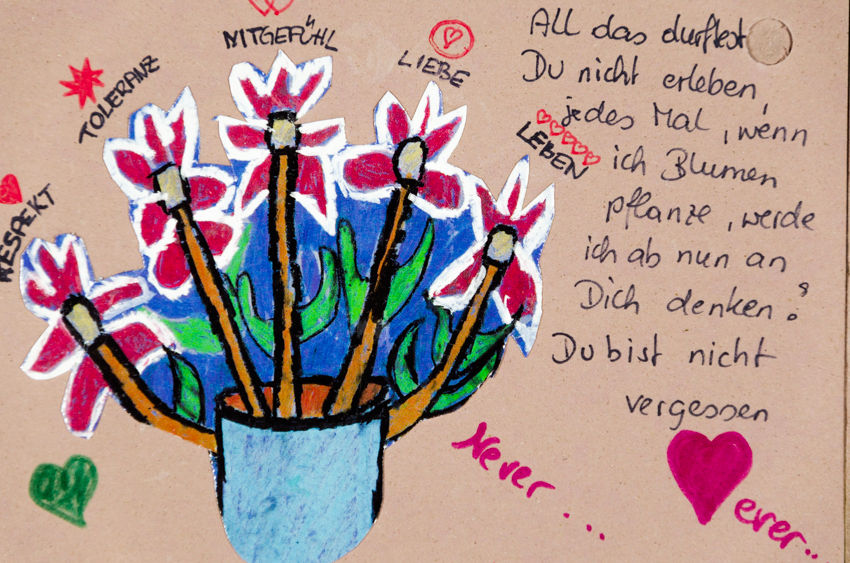 RESPEKT
TOLERANZ
MITGEFÜHL
LIEBE
LEBEN
All das durftest
Du nicht erleben,
jedes Mal, wenn
ich Blumen
pflanze, werde
ich ab nun an
Dich denken.
Du bist nicht
vergessen
Never ...
ever..